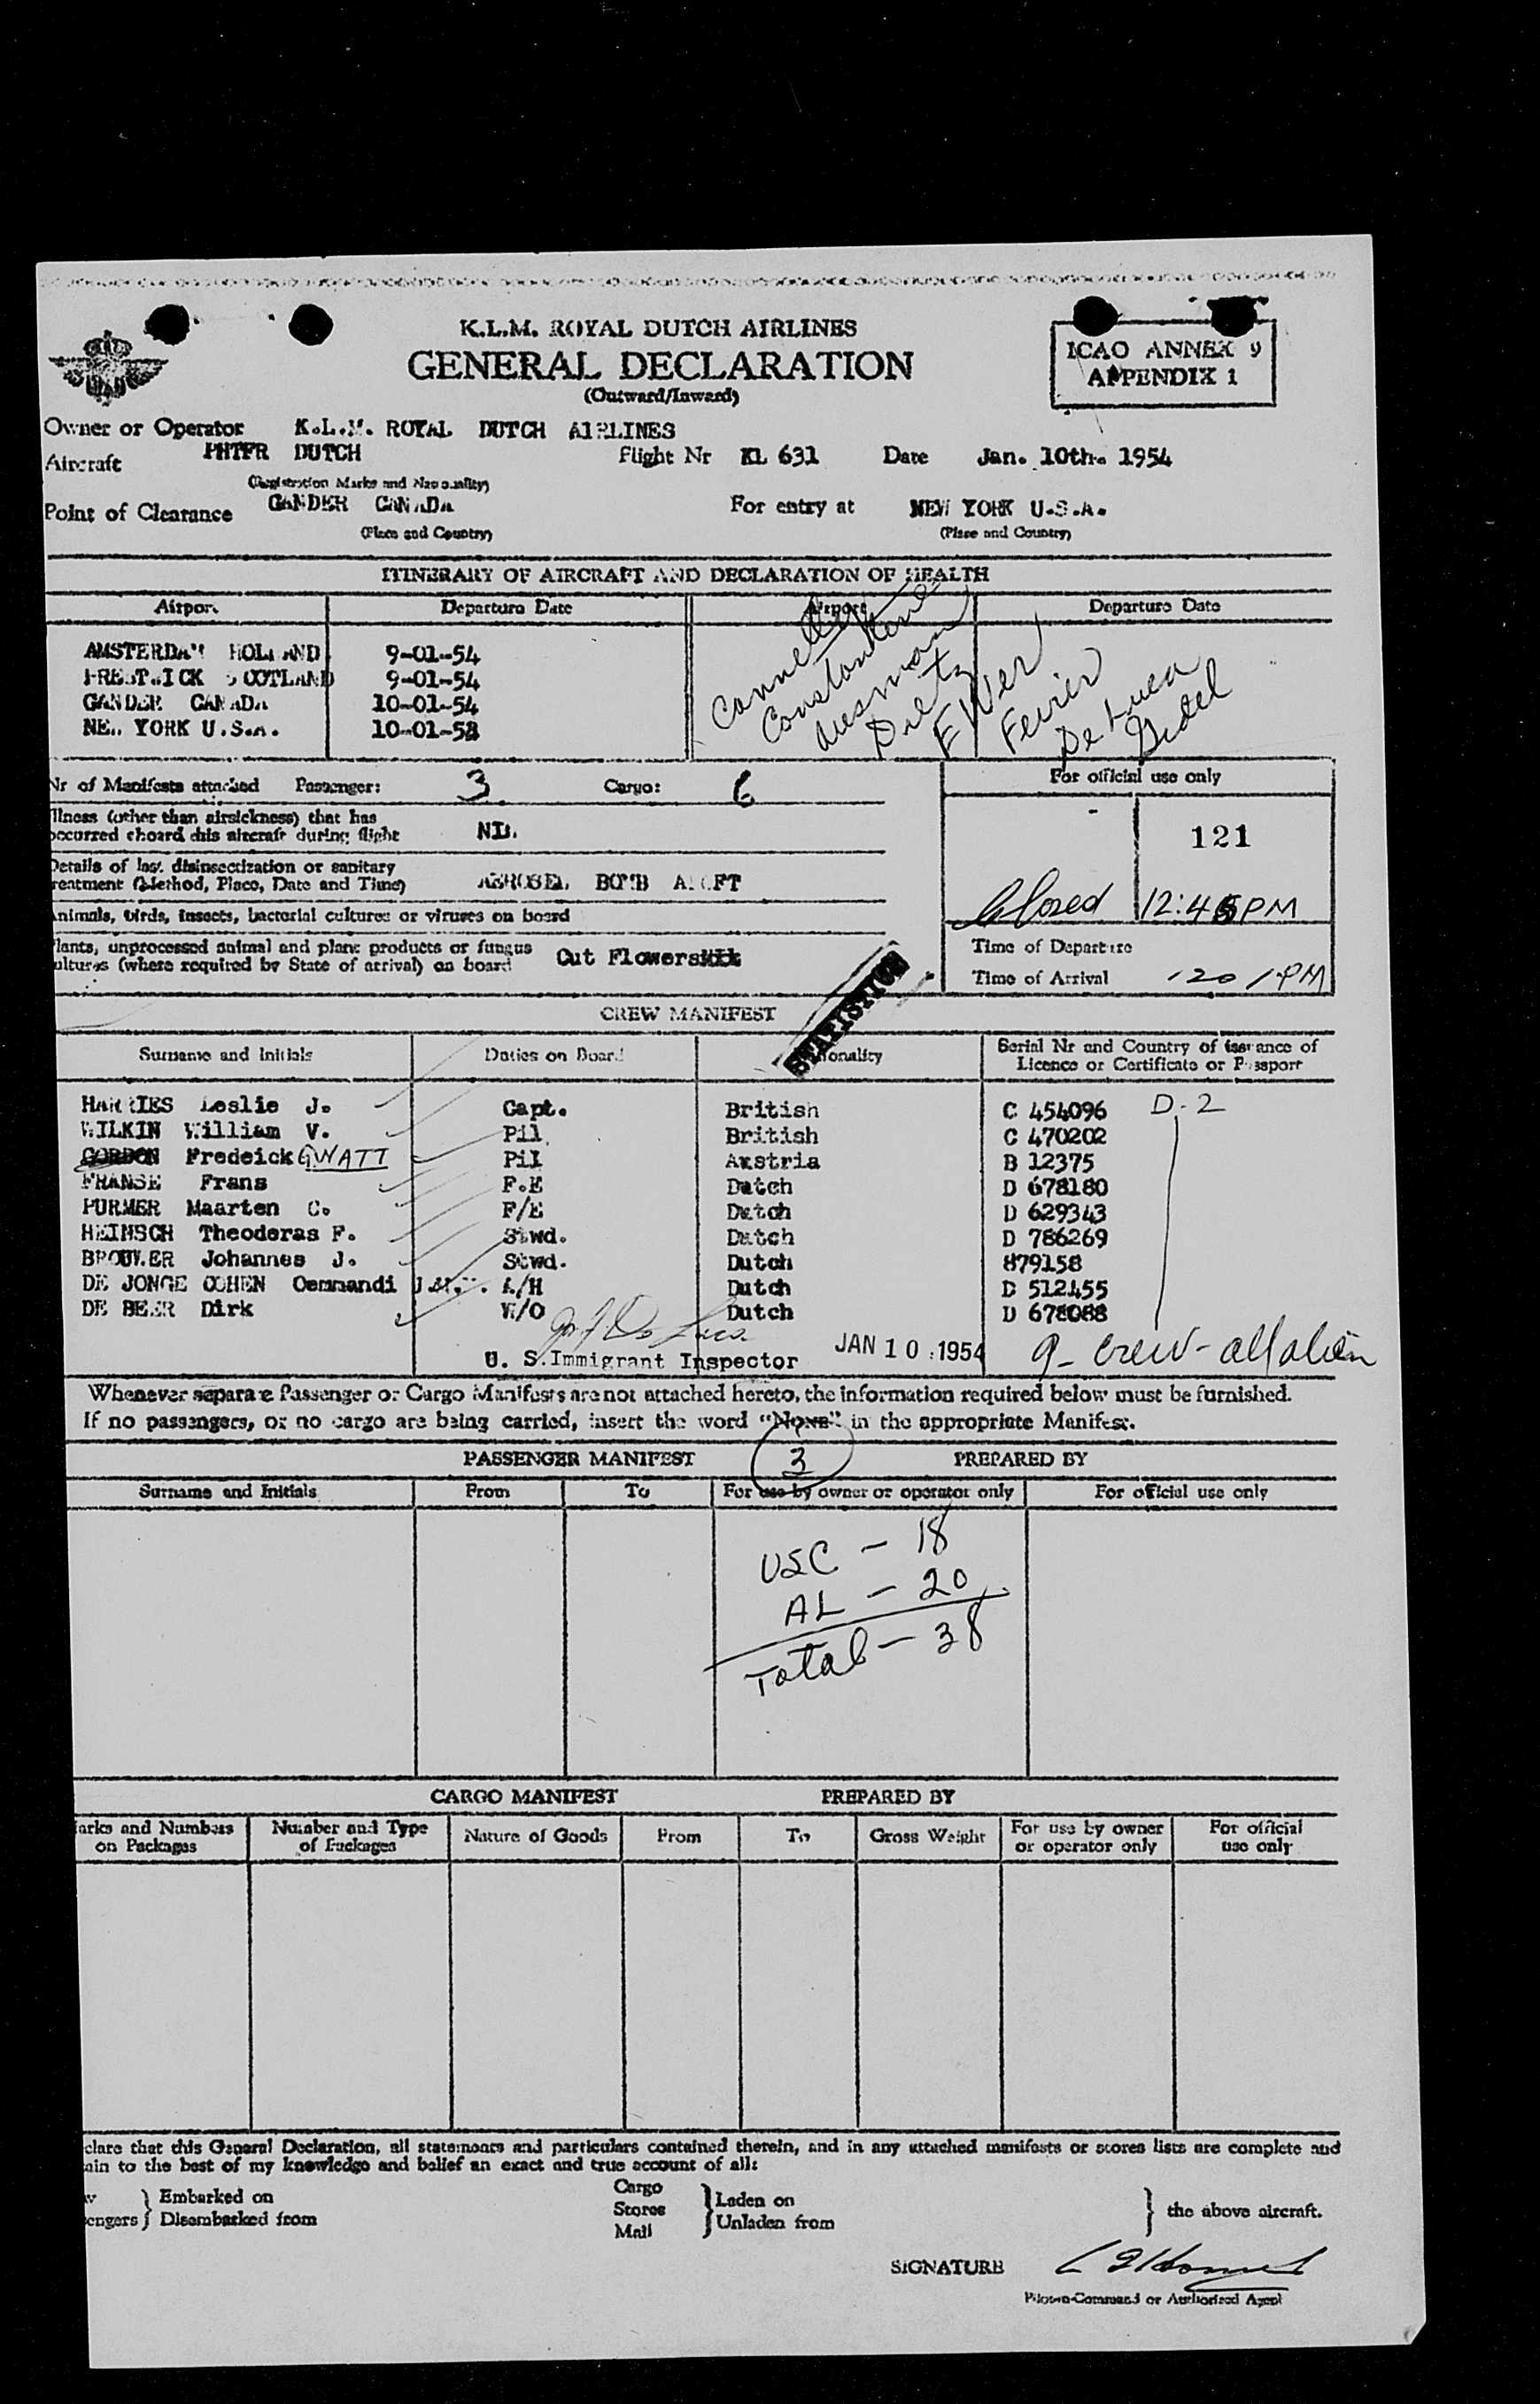 K.L.M. ROYAL DUTCH AIRLINES
GENERAL DECLARATION
(Outward/Inward)
ICAO ANNEX 9
APPENDIX 1
Owner or Operator K.L.M. ROYAL DUTCH AIRLINES
Aircraft PHTFR DUTCH Flight Nr KL 631 Date Jan. 10th. 1954
(Registration Marks and Nationality)
Point of Clearance GANDER CANADA For entry at NEW YORK U.S.A.
(Place and Country) (Place and Country)
ITINERARY OF AIRCRAFT AND DECLARATION OF HEALTH
Airport Departure Date Airport Departure Date
AMSTERDAM HOLLAND 9-01-54
PRESTWICK SCOTLAND 9-01-54
GANDER CANADA 10-01-54
NEW YORK U.S.A. 10-01-53
Dietz
Ferrier
De Luca
Nr of Manifests attached Passenger: 3 Cargo: 6
For official use only
Illness (other than airsickness) that has
occurred aboard this aircraft during flight NIL
121
Details of last disinsectization or sanitary
treatment (Method, Place, Date and Time) AEROSEL BOMB ACRFT
Closed 12:45 PM
Animals, birds, insects, bacterial cultures or viruses on board
Plants, unprocessed animal and plant products or fungus
cultures (where required by State of arrival) on board Cut Flowers
Time of Departure
Time of Arrival 1201 PM
STATISTICS
CREW MANIFEST
Surname and Initials Duties on Board Nationality Serial Nr and Country of issuance of
Licence or Certificate or Passport
HARRIES Leslie J. Capt. British C 454096 D-2
WILKIN William V. Pil British C 470202
GORDON Fredeick GWATT Pil Axstria B 12375
FRANSE Frans F.E Dutch D 678180
PURMER Maarten C. F/E Dutch D 629343
HEINSCH Theoderas F. Stwd. Dutch D 786269
BROUWER Johannes J. Stwd. Dutch 879158
DE JONGE COHEN Oemmandi A/H Dutch D 512455
DE BEER Dirk W/O Dutch D 678088
U. S. Immigrant Inspector JAN 10 1954 9- crew- all alien
Whenever separate Passenger or Cargo Manifests are not attached hereto, the information required below must be furnished.
If no passengers, or no cargo are being carried, insert the word "None" in the appropriate Manifest.
PASSENGER MANIFEST 3 PREPARED BY
Surname and Initials From To For use by owner or operator only For official use only
USC - 18
AL - 20
Total - 38
CARGO MANIFEST PREPARED BY
Marks and Numbers
on Packages Number and Type
of Packages Nature of Goods From To Gross Weight For use by owner
or operator only For official
use only
clare that this General Declaration, all statements and particulars contained therein, and in any attached manifests or stores lists are complete and
ain to the best of my knowledge and belief an exact and true account of all:
w } Embarked on Cargo } Laden on } the above aircraft.
engers } Disembarked from Stores } Unladen from
Mail
SIGNATURE
Pilot-in-Command or Authorized Agent